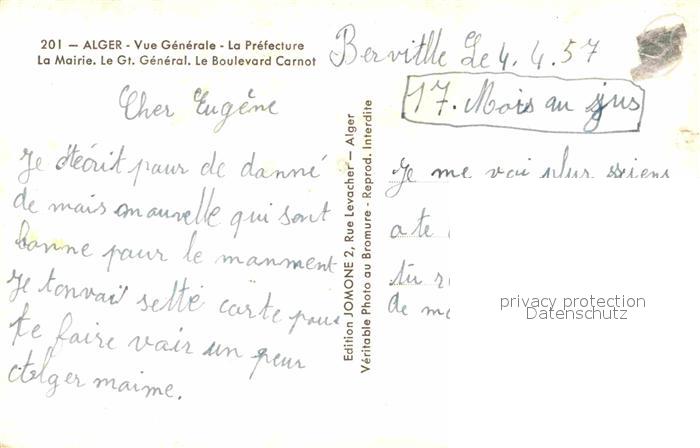 201 — ALGER - Vue Générale - La Préfecture
La Mairie. Le Gt. Général. Le Boulevard Carnot
Bervitlle Le 4.4.57
17. Mois au jus
Cher Eugêne
Je técrit pour de donné
de mais mouvelle qui sont
bonne pour le monment
Je tonvai setté carte pour
te faire vair un peur
Alger maime.
Edition JOMONE 2, Rue Levacher — Alger
Véritable Photo au Bromure - Reprod. Interdite
Je me voi plus riens
a te
tu
de
privacy protection
Datenschutz